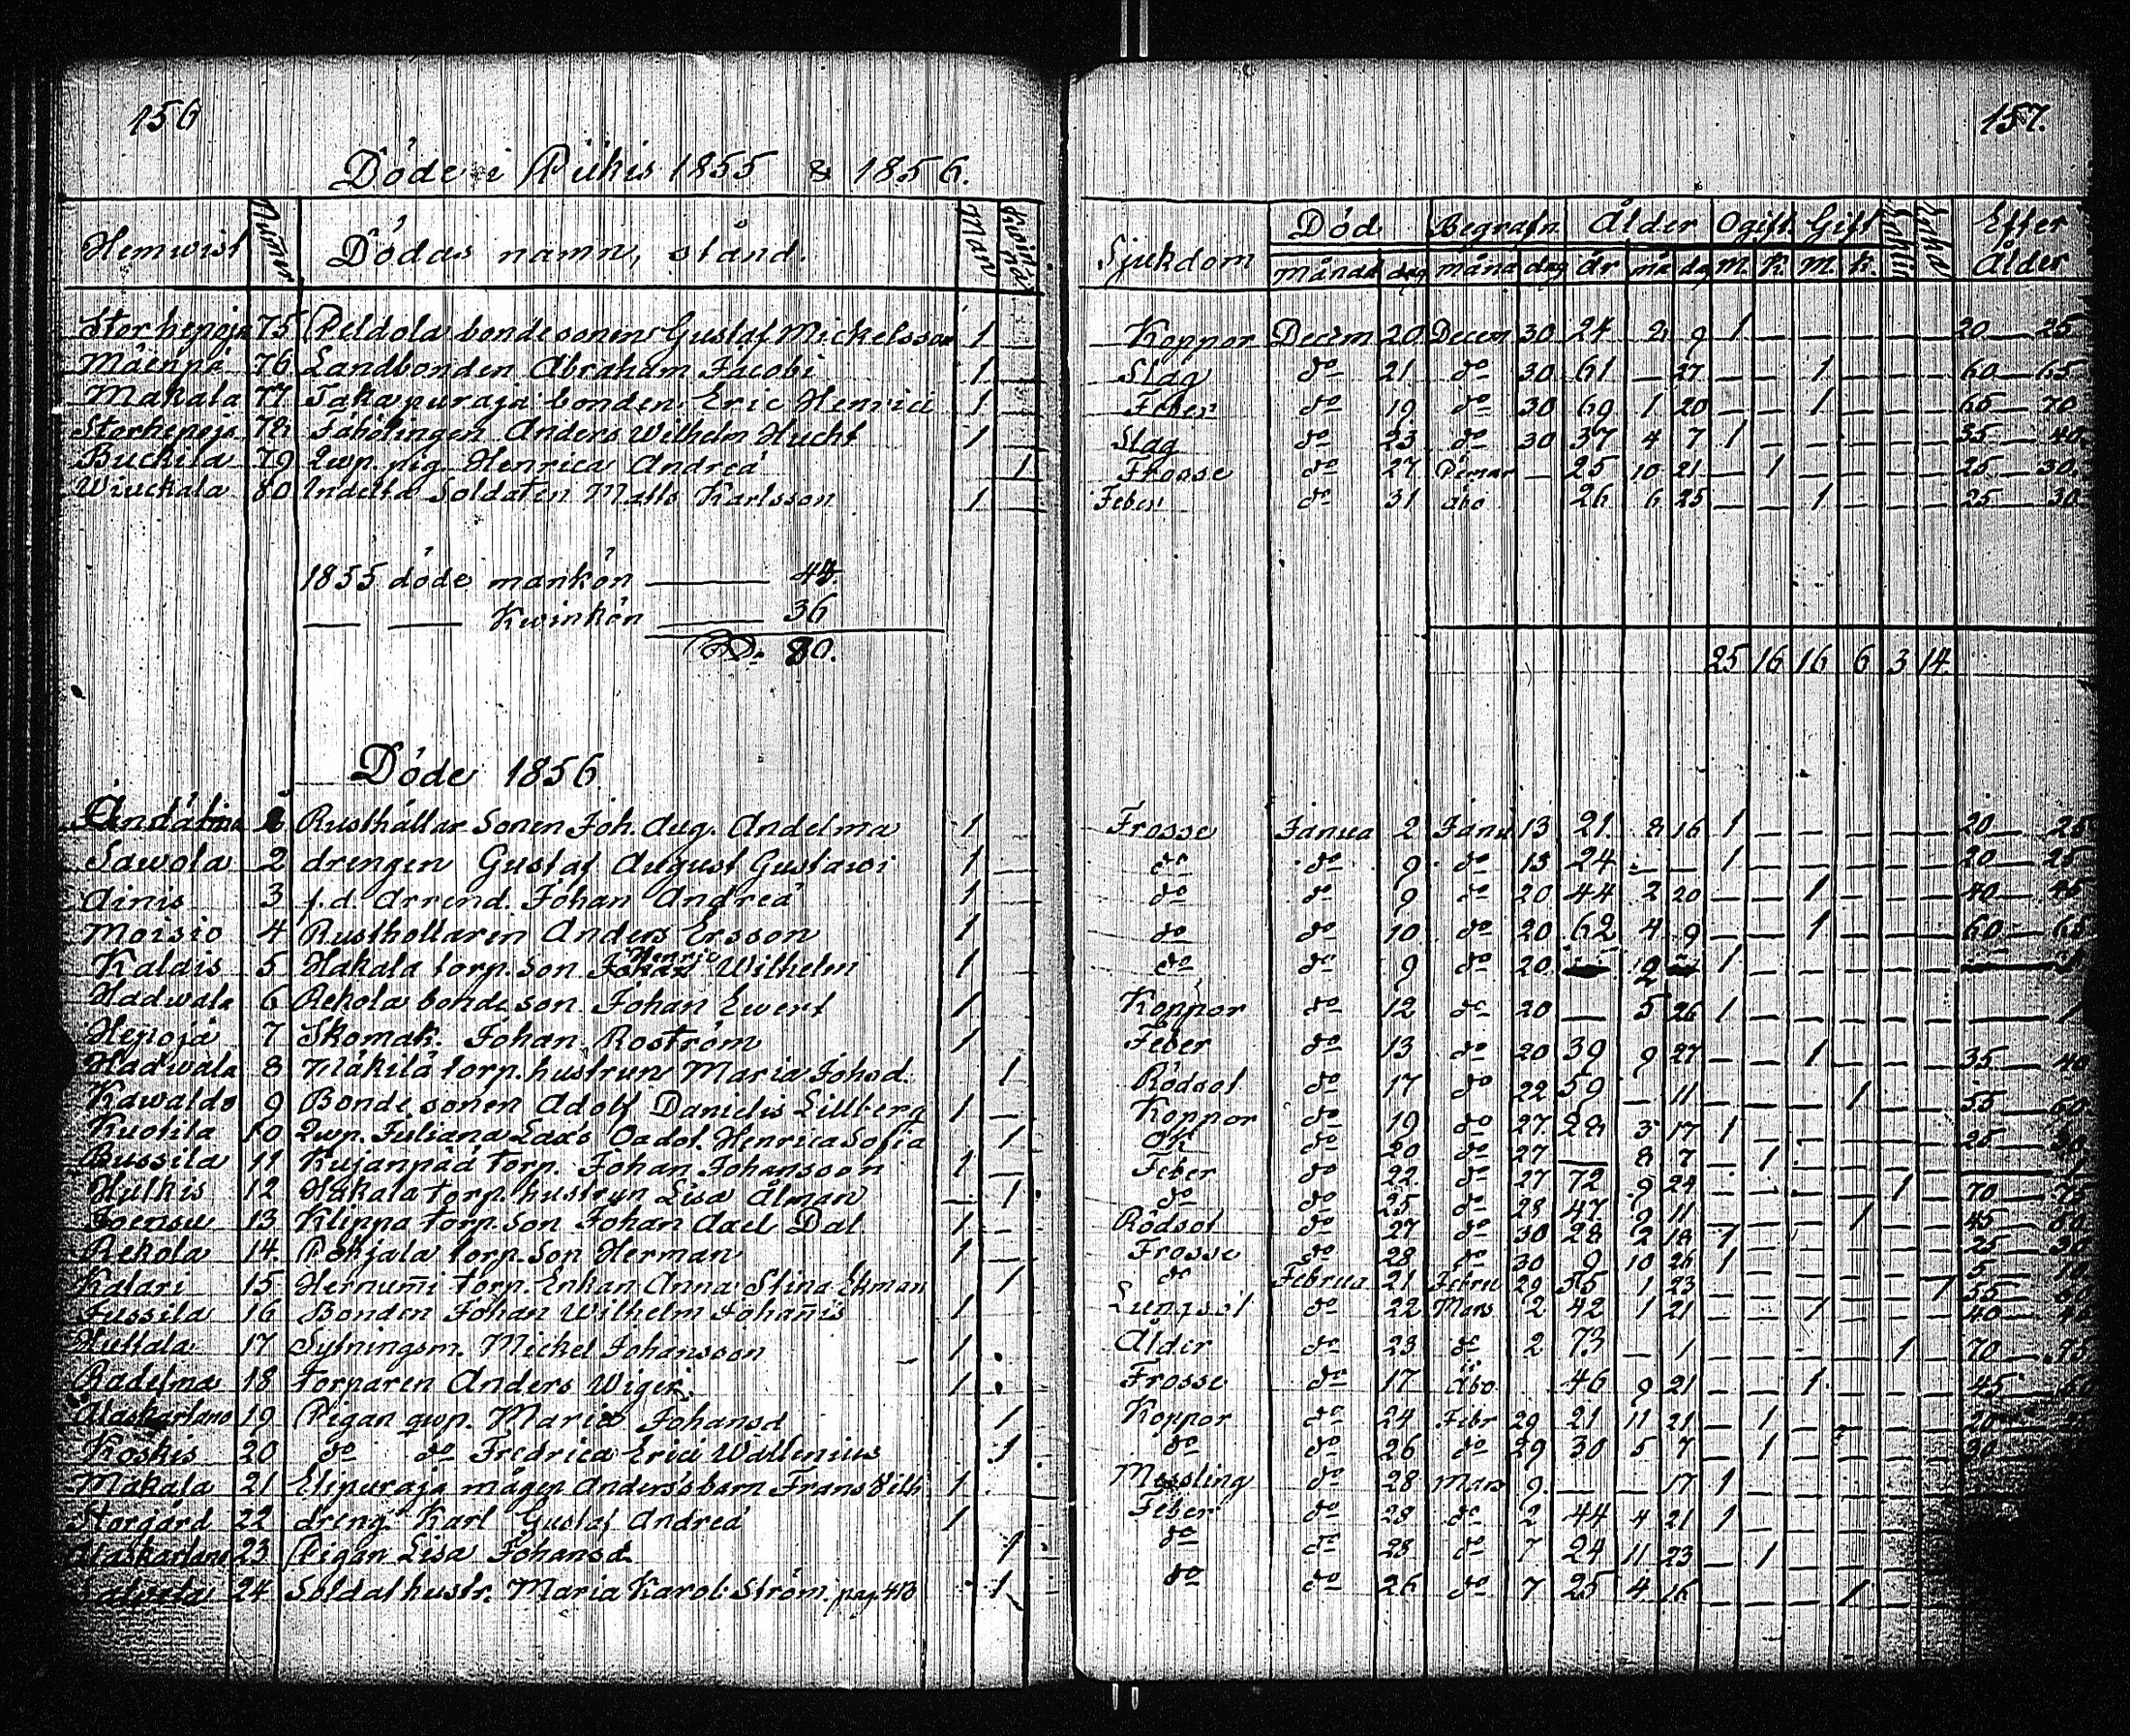 156
Döde i Pikis 1855 & 1856.
Hemwist Numer Dödas namn, stånd. Man Kwinkön
Storhepoja 75 Peldola bondesonen Gustaf Mickelsson 1
Mäenpä 76 Landbonden Abraham Jacobi 1
Makala 77 Takapuraja bonden Eric Henrici 1
Storhepoja 78 Anders Wilhelm Hucht 1
Buckila 79 Qwp. pig Henrica Andreä 1
Wiuckala 80 Indelta Soldaten Matts Karlsson 1
1855 döde mankön 44
Kwinkön 36
80.
Döde 1856
Rusthållar Sonen Joh. Aug. Andelma 1
Sawola 2 drengen Gustaf August Gustawi 1
Ainis 3 f.d. Arrend. Johan Andreä 1
Moisio 4 Rusthollaren Anders Ersson 1
Kaldis 5 Hakala torp. Son Johan Henric Wilhelm 1
Hadwala 6 Rekola bonde son Johan Ewert 1
Hepoja 7 Skomak. Johan Roström 1
Hadwala 8 torp. hustrun Maria Johsd. 1
Kawaldo 9 Bonde sonen Adolf Danielis Lillberg 1
Kuotila 10 Qwp. Juliana Henrica Sofia 1
Bussila 11 Kujanpää torp. Johan Johansson 1
Hulkis 12 Hakala torp. hustrun Lisa Ålman 1
Joensu 13 Klippa torp. Son Johan Axel Dal 1
Rekola 14 Pohjala torp. Son Herman 1
Kalari 15 torp. Enkan Anna Stina Ekman 1
Jussila 16 Bonden Johan Wilhelm Johannis 1
Huttala 17 Sytningsm. Mickel Johansson 1
Radelma 18 torparen Anders Wiger 1
Alaskarlano 19 Pigan qwp. Maria Johansd 1
Koskis 20 do do Fredrica Erici Wallenius 1
Makala 21 Elipuraja mågen Anders's barn Frans Wilh 1
Storgård 22 dreng. Karl Gustaf Andreä 1
Alaskarlano 23 Pigan Lisa Johansd. 1
24 Soldat hustr. Maria Karol. Ström. pag. 1
157.
Sjukdom Död Begrafn Ålder Ogift Gift Enkling Enka Efter Ålder
Månad dag måna dag år må da M. K. M. K.
Koppor Decem 20 Decem 30 24 2 9 1 20 — 25
Slag do 21 do 30 61 — 27 — — 1 60 — 65
Feber do 19 do 30 69 1 20 — — 1 65 — 70
Slag do 23 do 30 37 4 7 1 35 — 40
Frosse do 27 — 25 10 21 — 1 25 — 30
Feber do 31 åbo 26 6 25 — — 1 25 — 30
25 16 16 6 3 14
Frosse Janua 2 Janu 13 21 8 16 1 20 — 25
do do 9 do 13 24 — — 1 20 — 25
do do 9 do 20 44 2 20 — — 1 40 — 45
do do 10 do 20 62 4 9 — — 1 60 — 65
do do 9 do 20 1
Koppor do 12 do 20 — 5 26 1 — 1
Feber do 13 do 20 39 9 27 — — 1 35 — 40
Rödsot do 17 do 22 59 — 11 — — — 1 55 — 60
Koppor do 19 do 27 28 3 17 1 25 — 30
do do 20 do 27 — 8 7 — 1 — 1
Feber do 22 do 27 72 9 24 — — — — 1 70 — 75
do do 25 do 28 47 9 11 — — — 1 45 — 50
Rödsot do 27 do 30 28 2 18 1 25 — 30
Frosse do 28 do 30 9 10 26 1 5 — 10
do Februa 21 Febru 29 55 1 23 1 55 — 60
Lungsot do 22 Mars 2 42 1 21 — — 1 40 — 45
Ålder do 23 do 2 73 — 1 — — — — 1 70 — 75
Frosse do 17 Åbo 46 9 21 — — 1 45
Koppor do 24 Febr 29 21 11 21 — 1 20
do do 26 do 29 30 5 7 — 1 30
Messling do 28 Mars 9 — — 17 1
Feber do 28 do 2 44 4 21 1
do do 28 do 7 24 11 23 — 1
do do 26 do 7 25 4 16 — — — 1